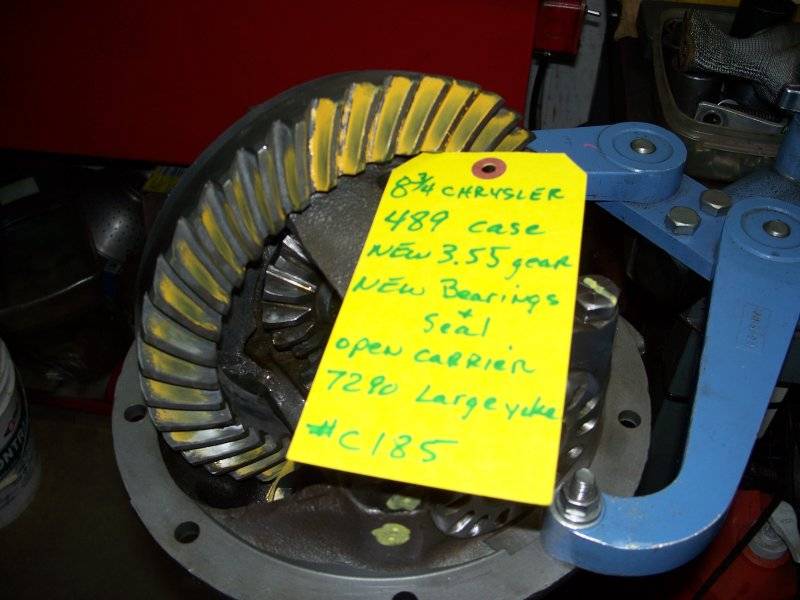 8 3/4 CHRYSLER
489 case
NEW 3.55 gear
NEW Bearings
+
Seal
open carrier
7290 Large yoke
#C185